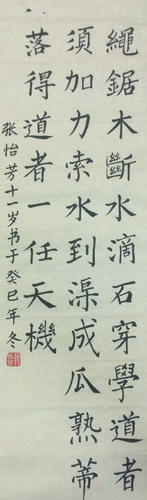 繩鋸木斷水滴石穿學道者
須加力索水到渠成瓜熟蒂
落得道者一任天機
张怡芳十一岁书于癸巳年冬